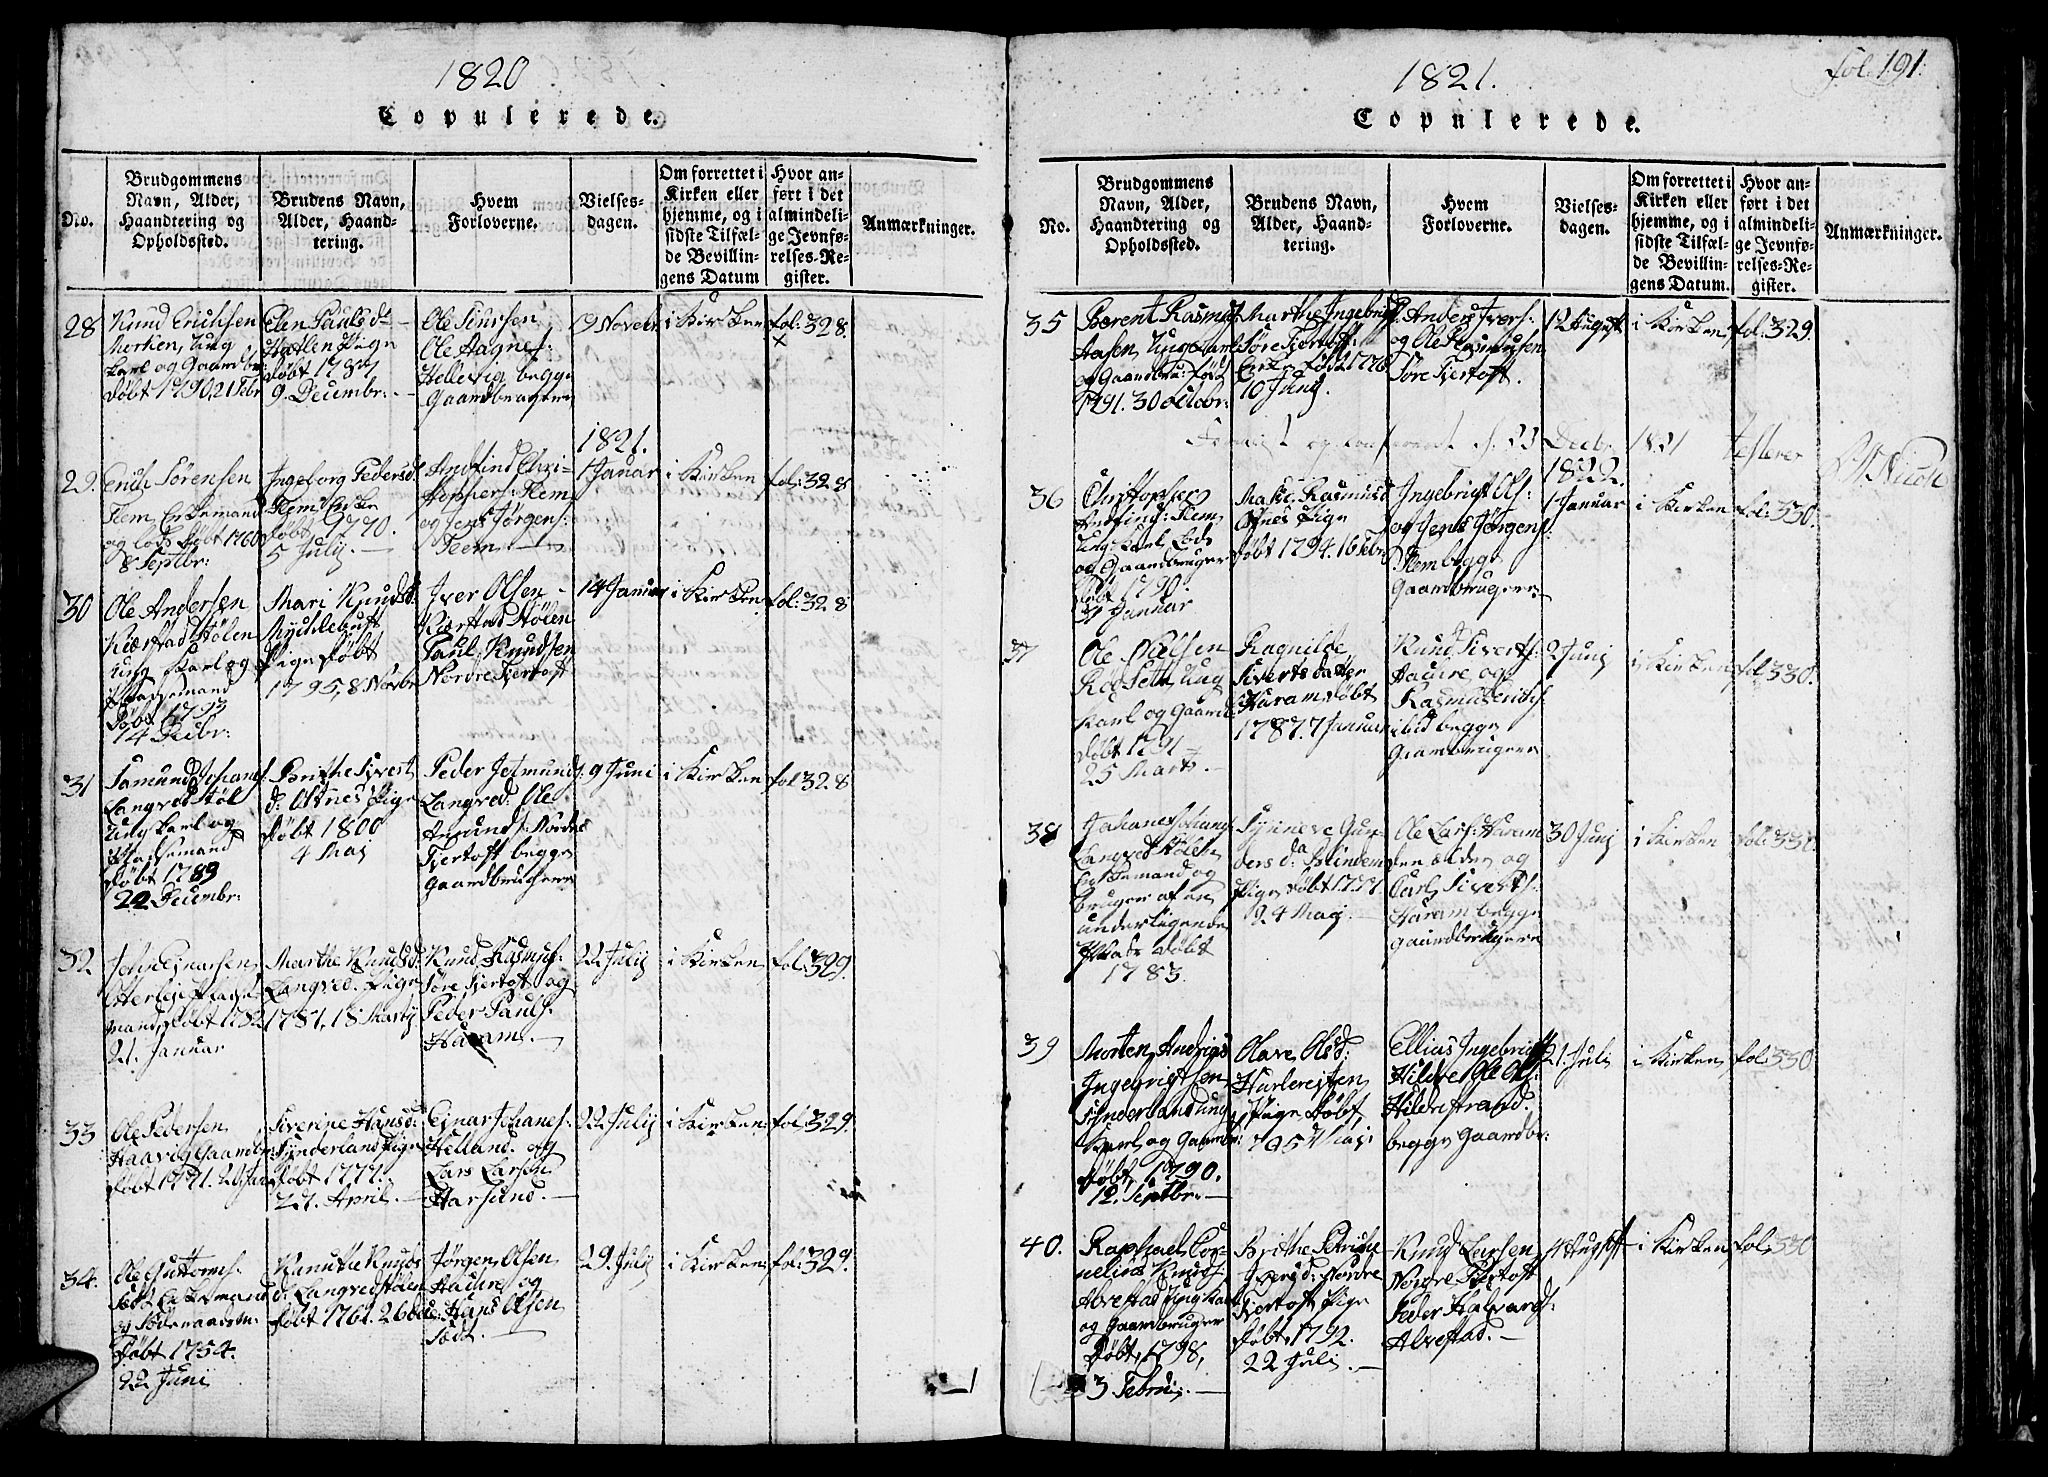 1820
Copulerede.
No.
Brudgommens
Navn, Alder,
Haandtering og
Opholdssted.
Brudens Navn,
Alder, Haand-
tering.
Hvem
Forloverne.
Vielses-
dagen.
Om forrettet i
Kirken eller
hjemme, og i
sidste Tilfæl-
de Bevillin-
gens Datum
Hvor an-
ført i det
almindeli-
ge Jevnfø-
relses-Re-
gister.
Anmærkninger.
28
Knud Erichsen
ung
Karl og Gaardbr:
Døbt 1790, 21 Febr
Elen Pauls d
Hatlen Pige
Døbt 1787
9. Decembr:
Ole Siursen
Ole Hagnes:
Hellevig begge
Gaardbrugere
19 Novebr
i Kirken
fol: 328.
29.
Erich Sørensen
Flem Enkemand
og Lods Døbt 1760
8 Septbr:
Ingeborg Pedersd.
Flem Enke
Døbt 1770.
5 Julij
Andfind Chri-
stophers: Flem
og Jens Jørgens:
Fleem
1821.
1 Januar
i Kirken
fol: 328
30
Ole Andersen
Kierstad Stølen
ung Karl og
Pladsemand
Døbt 1793
14 Decbr:
Mari Knudsd.
Mychlebust
Pige Døbt
1795, 8 Novbr
Iver Olsen
Kierstad Stølen
Paul Knudsen
Nordre Fiertoft
14 Januar
i Kirken
fol: 328
31
Samund Johans:
Langved Støl
Ung Karl og
Pladsemand
Døbt 1789
22 Decembr:
Brithe Sivert
d: Ostnes Pige
Døbt 1800
4 Maj
Peder Jetmunds:
Langved: Ole
Amunds: Nordre
Fiertoft begge
Gaardbrugere
9 Juni
i Kirken
fol 328
32
Jens Ejnarsen
Otterleje Pladse
mand, Døbt 1782
21. Januar
Marthe Knudsd.
Langved. Pige
1781, 18 Martj
Knud Rasmus:
Søre Fiertoft og
Peder Pauls:
Haram.
22 Julij
i Kirken
fol: 329.
33
Ole Pedersen
Haavig Gaardbr:
Døbt 1771. 2. Jan
Siverine Hansd:
Synderland Pige
Døbt 1777.
27. April.
Ejnar Johanes:
Helland. og
Lars Larsen
Harsund.
22 Julij
i Kirken
fol 329.
34.
Ole Guttorms:
Sødt Enkemand
Døbt 1754.
22 Juni
Knutte Knuds
d: Langvedstølen
Døbt 1761. 26
Jørgen Olsen
Haure og
Hans Olsen
Sødt.
29. Julij
i Kirken
fol: 329.
1821.
fol. 191.
Copulerede.
No.
Brudgommens
Navn, Alder,
Haandtering og
Opholdssted.
Brudens Navn,
Alder, Haand-
tering.
Hvem
Forloverne.
Vielses-
dagen.
Om forrettet i
Kirken eller
hjemme, og i
sidste Tilfæl-
de Bevillin-
gens Datum.
Hvor an-
ført i det
almindeli-
ge Jevnfø-
relses-Re-
gister.
Anmærkninger.
35
Bærent Rasmus:
Aasen, Ung Karl
og Gaardbru: Født
1791. 30 Octobr:
Marthe Ingebrigts
Søre Fiertoft
Enke, Født 1770
10 Junj.
Anders Ivers:
og Ole Rasmusen
Søre Fiertoft.
12 August
i Kirken
fol. 329.
d. 23 Decbr. 1821
36
Christopher
Andfinds: Flem
Ung Karl Lods
og Gaardbruger
Døbt 1790.
31 Januar
Make Rasmusd
Ostnes Pige
Døbt 1794. 16 Febr
Ingebrigt Ols:
og Jens Jørgens:
Flem begge
Gaardbrugere
1822.
1 Januar
i Kirken
fol: 330.
37
Ole Nielsen
Rosett, Ung
Karl og Gaardb
Døbt 1791
25 Marts.
Ragnilde
Siverts datter
Haram, Døbt
1787. 7 Januar
Knud Siverts:
Haure og
Rasmus
begge
Gaardbrugere
2 Junj
i Kirken
fol 330.
38
Johanes Johans:
Langved Stølen
Enkemand og
Bruger af en
underligende
Plads Døbt
1783.
Synneve Gun
ders da: Rinden
Pige Døbt 1777
24 Maj.
Ole Lars: Haram
den ældre og
Carl Siverts:
Haram begge
gaardbrugere
30 Junj
i Kirken
fol: 330
39
Morten Andreas
Ingebrigtsen
Synderland ung
Karl og Gaardbr:
Døbt, 1790.
12. Septbr:
Olave Olsd:
Hurlereiten
Pige Døbt,
1795 Maj:
Ellias Ingebrigts
Hildre, Ole Ols:
Hildrestrand.
begge Gaardbr:
21. Juli
i Kirken
fol: 330
40.
Raphael Cor-
nelius Knuds:
Alvestad Ung Karl
og Gaardbruger
Døbt, 1798,
3 Februj.
Brithe Petrine
Ivers d: Nordre
Fiertoft Pige
Døbt, 1792.
22 Juli.
Knud Larsen
Nordre Fiertoft
Peder Halvards:
Alvestad.
4 August
i Kirken
fol. 330